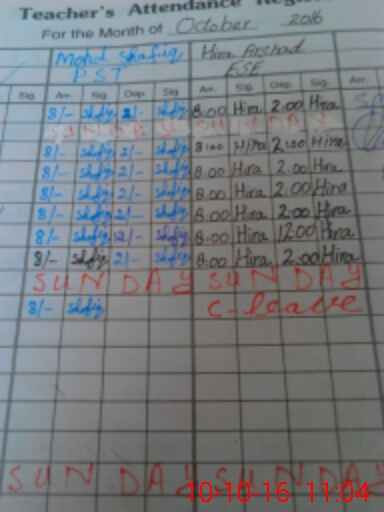 Teacher's Attendance Regist
For the Month of October 2016
Mohd Shafiq Hira Arshad
PST ESE
Sig. Arr. Sig. Dep. Sig. Arr. Sig. Dep. Sig. Arr.
8/- Shfiq 2/- Shfiq 8:00 Hira 2:00 Hira
SUNDAY SUNDAY
8/- Shfiq 2/- Shfiq 8:00 Hira 2:00 Hira
8/- Shfiq 2/- Shfiq 8:00 Hira 2:00 Hira
8/- Shfiq 2/- Shfiq 8:00 Hira 2:00 Hira
8/- Shfiq 2/- Shfiq 8:00 Hira 2:00 Hira
8/- Shfiq 12/- Shfiq 8:00 Hira 12:00 Hira
8/- Shfiq 2/- Shfiq 8:00 Hira 2:00 Hira
SUNDAY SUNDAY
8/- Shfiq C-leave
SUNDAY SUNDAY
10-10-16 11:04